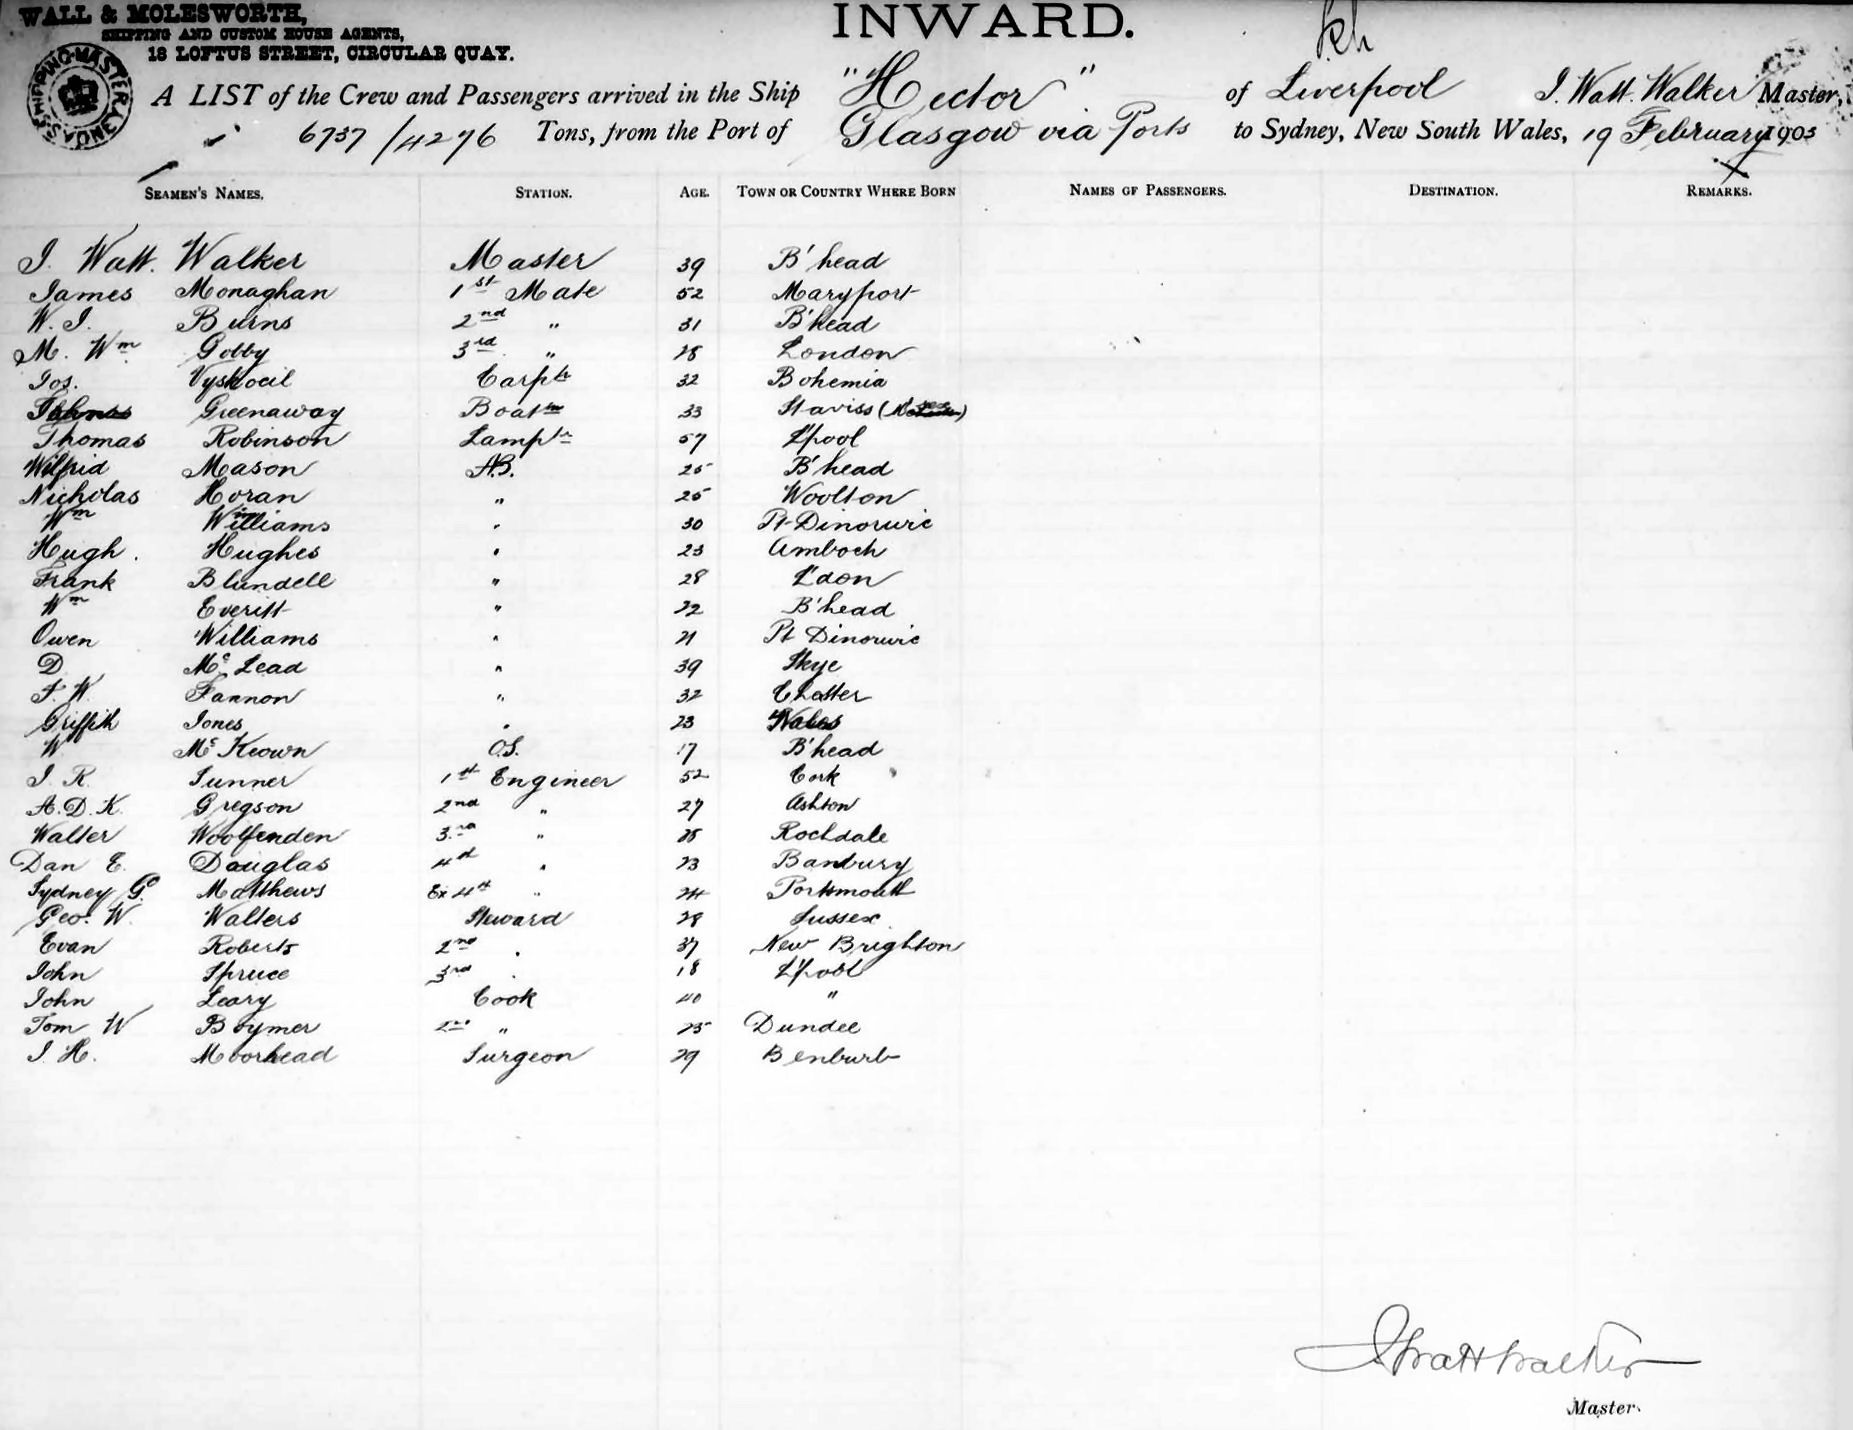 WALL & MOLESWORTH,
SHIPPING AND CUSTOM HOUSE AGENTS,
18 LOFTUS STREET, CIRCULAR QUAY.
INWARD.
SHIPPING MASTER SYDNEY
A LIST of the Crew and Passengers arrived in the Ship "Hector" of Liverpool J. Watt. Walker Master,
6737/4276 Tons, from the Port of Glasgow via Ports to Sydney, New South Wales, 19 February 1903
SEAMEN'S NAMES. STATION. AGE. TOWN OR COUNTRY WHERE BORN NAMES OF PASSENGERS. DESTINATION. REMARKS.
J. Watt. Walker Master 39 B'head
James Monaghan 1st Mate 52 Maryport
W. J. Burns 2nd " 31 B'head
M. Wm Gobby 3rd " 28 London
Jos. Vyskocil Carptr 32 Bohemia
Greenaway Boatsn 33
Thomas Robinson Lamptr 57 L'pool
Wilfrid Mason A.B. 25 B'head
Nicholas Horan " 25 Woolton
Wm Williams " 30 Pt Dinorwic
Hugh. Hughes " 23 Amboch
Frank Blundell " 28 L'don
Wm Everitt " 22 B'head
Owen Williams " 21 Pt Dinorwic
D. McLead " 39 Skye
F. W. Fannon " 32 Chester
Griffith Jones " 23 Wales
W. McKeown O.S. 17 B'head
J. R. Sunner 1st Engineer 52 Cork
A. D. K. Gregson 2nd " 27 Ashton
Walter Woolfenden 3rd " 25 Rochdale
Dan E. Douglas 4th " 23 Banbury
Sydney Go Matthews Ex 4th " 24 Portsmouth
Geo. W. Walters Steward 28 Sussex
Evan Roberts 2nd " 37 New Brighton
John Spruce 3rd " 18 L'pool
John Leary Cook 40 "
Tom W Boymer 2nd " 25 Dundee
J. H. Moorhead Surgeon 29 Benburb
J Watt Walker
Master.